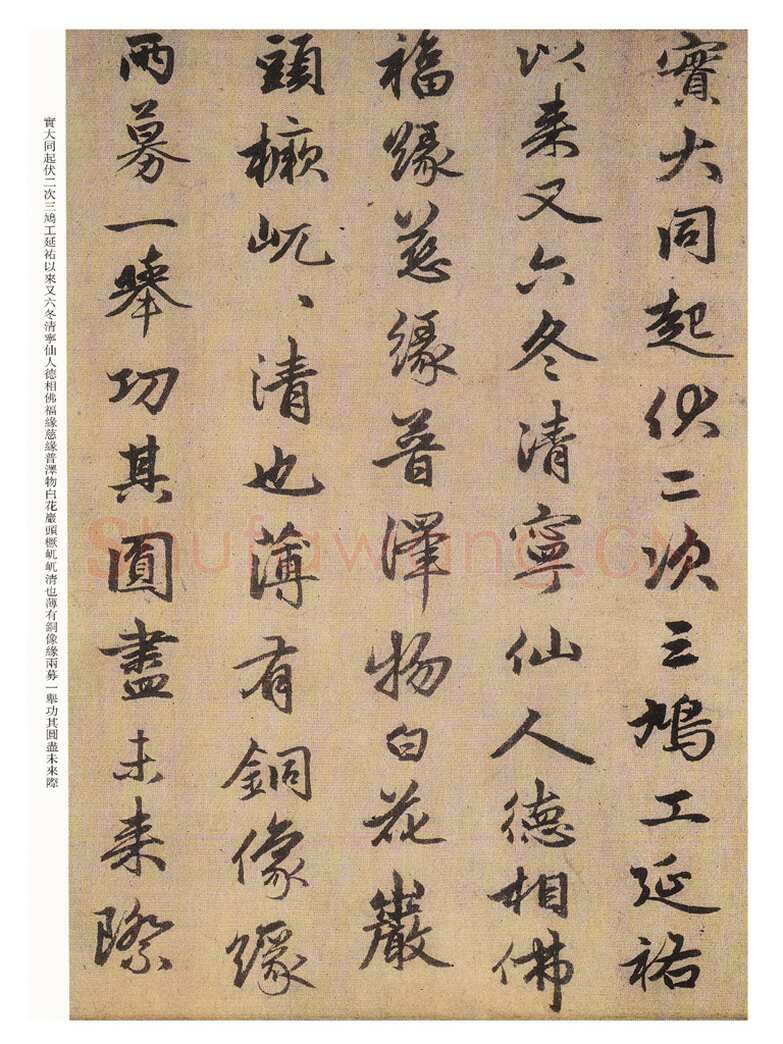 實大同起伏二次三鳩工延祐
以来又六冬清寧仙人德相佛
福緣慈緣普澤物白花巖
頭橛屼、清也薄有銅像緣
兩募一舉功其圓盡未来際
實大同起伏二次三鳩工延祐以來又六冬清寧仙人德相佛福緣慈緣普澤物白花巖頭橛屼屼清也薄有銅像緣兩募一舉功其圓盡未來際
Shufawang.CN